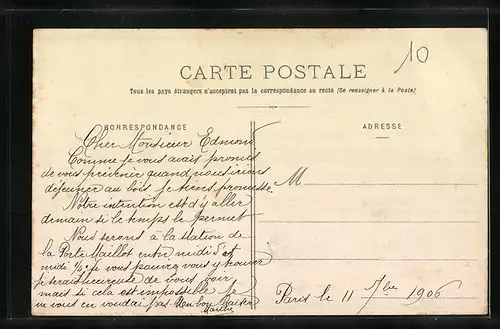 10
CARTE POSTALE
Tous les pays étrangers n'acceptent pas la correspondance au recto (Se renseigner à la Poste)
CORRESPONDANCE
ADRESSE
Cher Monsieur Edmond
Comme je vous avais promis
de vous prévenir quand nous irions
déjeuner au bois je tiens promesse
Notre intention est d'y aller
demain si le temps le permet
Nous serons à la station de
la Porte Maillot entre midi et
midi ½ si vous pouvez vous y trouver
je serais heureuse de vous voir
mais si cela est impossible je
ne vous en voudai pas Un bon Baiser
M
Paris le 11 7bre 1906